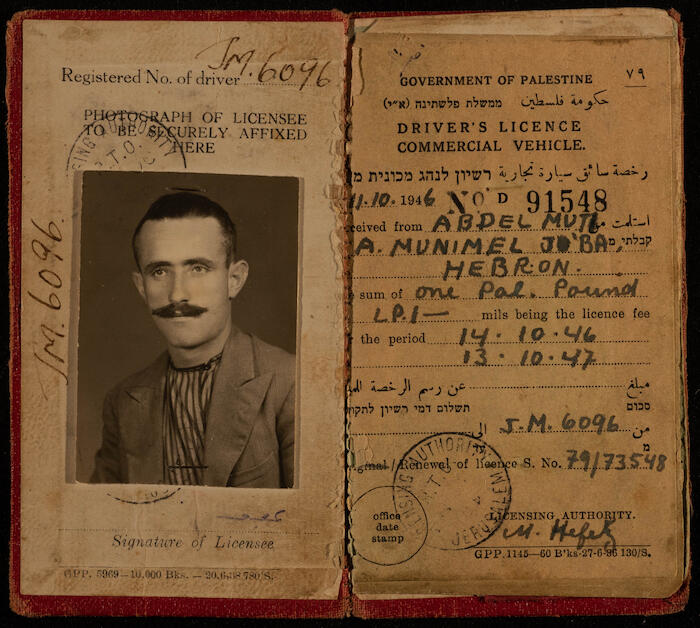 Registered No. of driver J.M. 6096
PHOTOGRAPH OF LICENSEE
TO BE SECURELY AFFIXED
HERE
J.M. 6096.
Signature of Licensee
GPP. 5969—10,000 Bks. — 20.6.38 780/S.
GOVERNMENT OF PALESTINE
٧٩
ממשלת פלשתינה (א״י) حكومة فلسطين
DRIVER'S LICENCE
COMMERCIAL VEHICLE.
رخصة سائق سيارة تجارية רשיון לנהג מכונית
11.10.1946 No D 91548
ceived from ABDEL MUTI استلمت من
A. MUNIMEL JO'BA, קבלתי
HEBRON.
sum of one Pal. Pound
LP.1— mils being the licence fee
the period 14.10.46
13.10.47
مبلغ عن رسم الرخصة
סכום תשלום דמי רשיון
من J.M. 6096 الى
Renewal of licence S. No. 79/73548
LICENSING AUTHORITY
M.T.O.
JERUSALEM
office
date
stamp
LICENSING AUTHORITY.
M. Hefetz
GPP. 1145—60 B'ks-27-6-86 130/S.